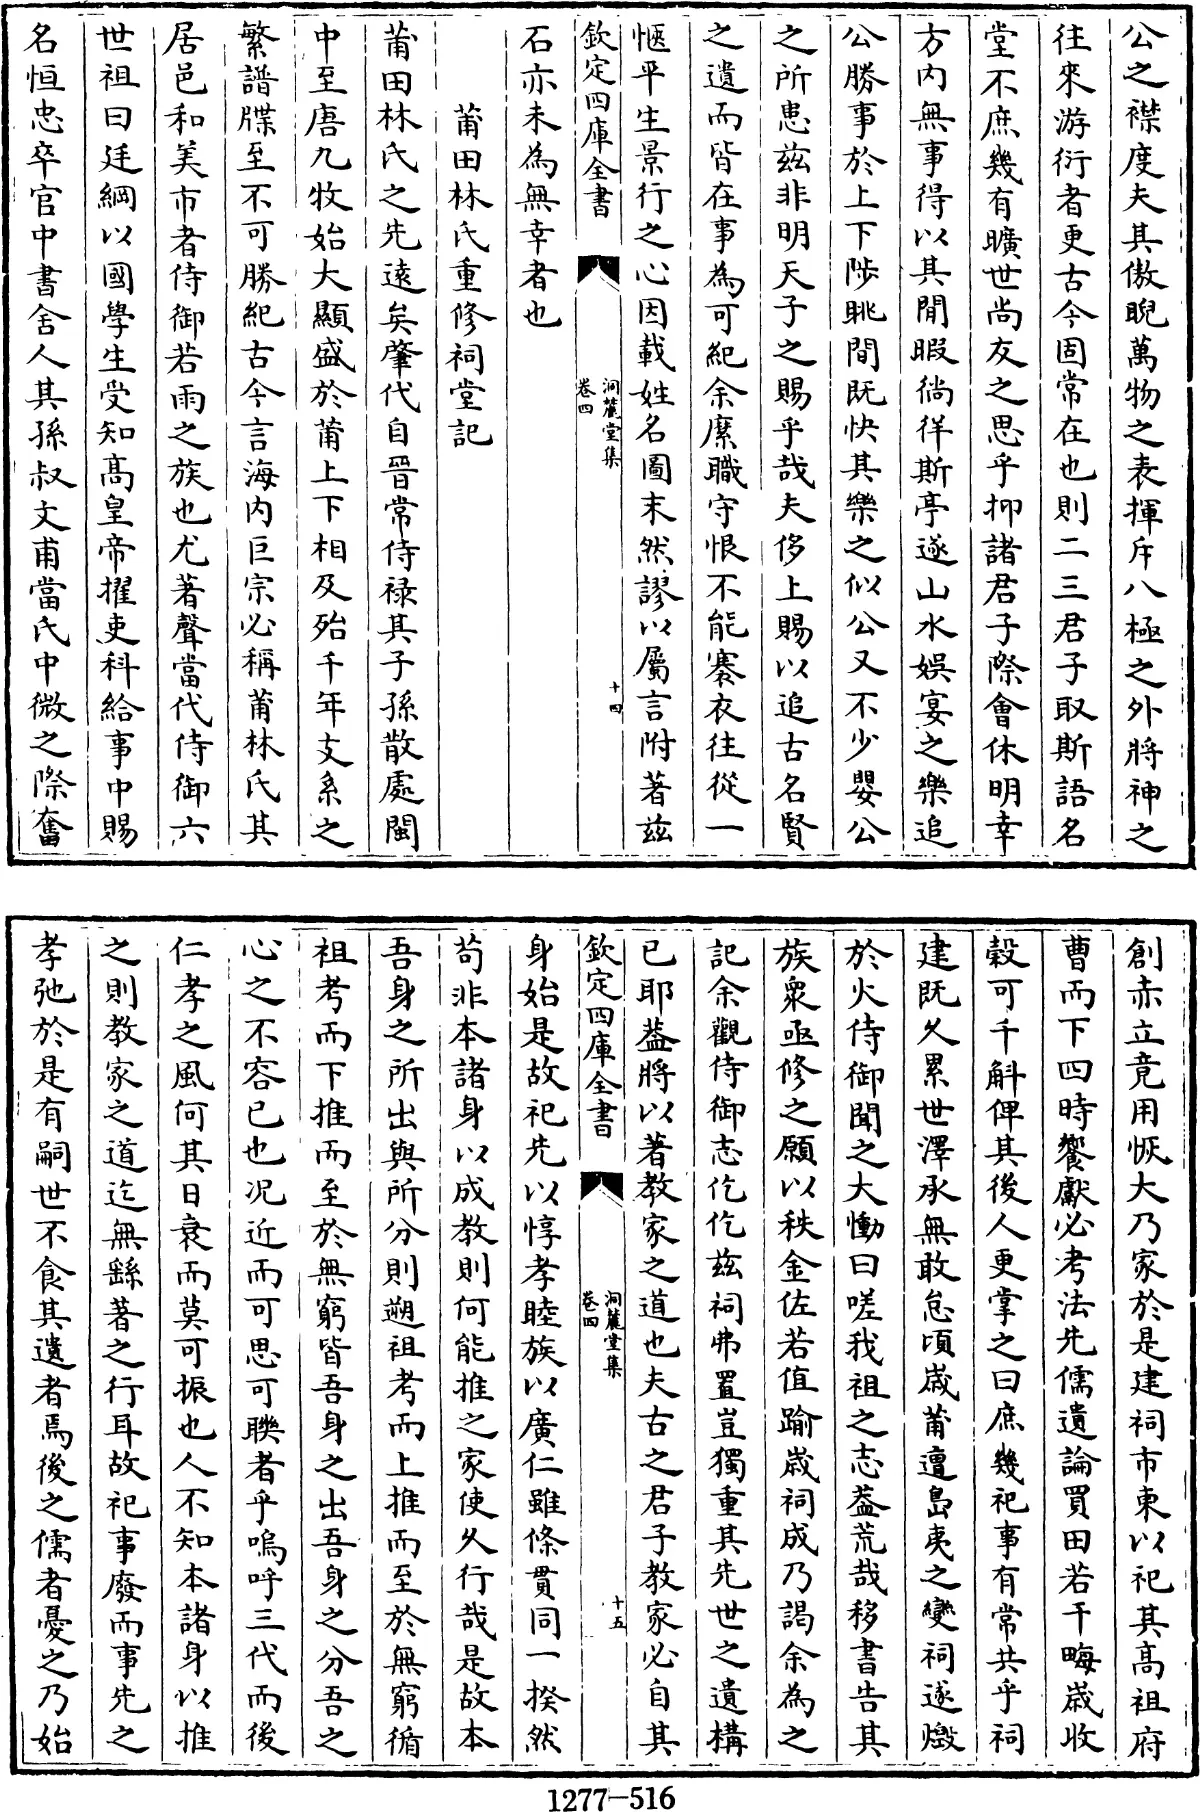 公之襟度夫其傲睨萬物之表揮斥八極之外將神之
往來游衍者更古今固常在也則二三君子取斯語名
堂不庶幾有曠世尚友之思乎抑諸君子際會休明幸
方内無事得以其閒暇徜徉斯亭遂山水娛宴之樂追
公勝事於上下陟眺間既快其樂之似公又不少嬰公
之所患兹非明天子之賜乎哉夫侈上賜以追古名賢
之遺而皆在事為可紀余縻職守恨不能褰衣往從一
愜平生景行之心因載姓名圖末然謬以屬言附著兹
欽定四庫全書
洞麓堂集
卷四
十四
石亦未為無幸者也
莆田林氏重修祠堂記
莆田林氏之先遠矣肇代自晉常侍禄其子孫散處閩
中至唐九牧始大顯盛於莆上下相及殆千年支系之
繁譜牒至不可勝紀古今言海内巨宗必稱莆林氏其
居邑和美市者侍御若雨之族也尤著聲當代侍御六
世祖曰廷綱以國學生受知髙皇帝擢吏科給事中賜
名恒忠卒官中書舍人其孫叔文甫當氏中微之際奮
創赤立竟用恢大乃家於是建祠市東以祀其髙祖府
曹而下四時饗獻必考法先儒遺論買田若干畮歳收
穀可千斛俾其後人更掌之曰庶幾祀事有常共乎祠
建既久累世澤承無敢怠頃歳莆遭島夷之變祠遂燬
於火侍御聞之大慟曰嗟我祖之志葢荒哉移書告其
族衆亟修之願以秩金佐若值踰歳祠成乃謁余為之
記余觀侍御志仡仡兹祠弗置豈獨重其先世之遺構
已耶葢將以著教家之道也夫古之君子教家必自其
欽定四庫全書
洞麓堂集
卷四
十五
身始是故祀先以惇孝睦族以廣仁雖條貫同一揆然
苟非本諸身以成教則何能推之家使久行哉是故本
吾身之所出與所分則遡祖考而上推而至於無窮循
祖考而下推而至於無窮皆吾身之出吾身之分吾之
心之不容已也况近而可思可聨者乎嗚呼三代而後
仁孝之風何其日衰而莫可振也人不知本諸身以推
之則教家之道迄無繇著之行耳故祀事廢而事先之
孝弛於是有嗣世不食其遺者焉後之儒者憂之乃始
1277-516